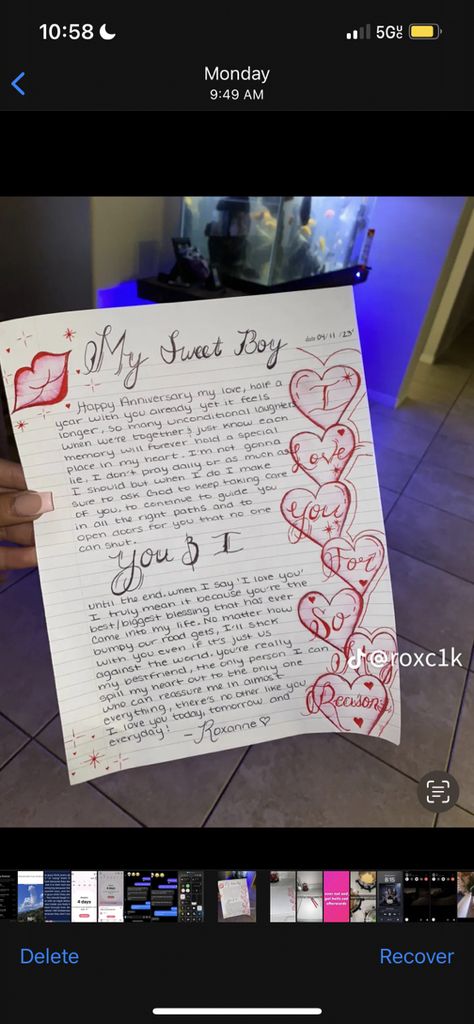 10:58
5GUC
Monday
9:49 AM
My Sweet Boy
date 04/11/23'
Happy Anniversary my love, half a
year with you already yet it feels
longer, so many unconditional laughters
when we're together! just know each
memory will forever hold a special
place in my heart. I'm not gonna
lie, I don't pray daily or as much as
I should but when I do I make
sure to ask God to keep taking care
of you, to continue to guide you
in all the right paths and to
open doors for you that no one
can shut.
You & I
until the end. when I say 'I love you'
I truly mean it because you're the
best/biggest blessing that has ever
came into my life. No matter how
bumpy our road gets, I'll stick
with you even if it's just us
against the world. you're really
my bestfriend, the only person I can
spill my heart out to the only one
who can reassure me in almost
everything, there's no other like you
I love you today, tomorrow and
everyday!
-Roxanne
I
Love
You
For
So
Reasons
@roxc1k
Delete
Recover